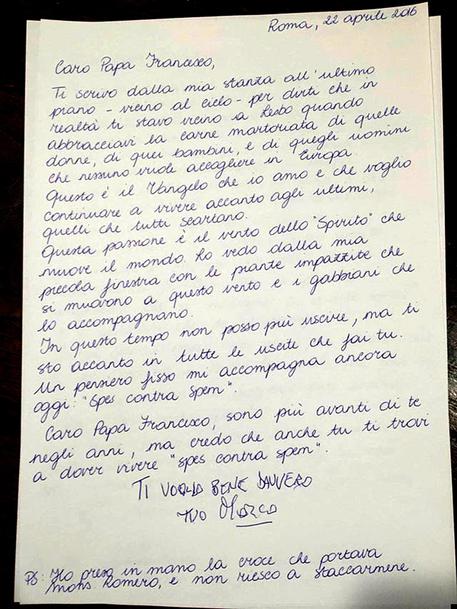 Roma, 22 aprile 2016
Caro Papa Francesco,
Ti scrivo dalla mia stanza all'ultimo
piano - vicino al cielo - per dirti che in
realtà ti stavo vicino a Lesbo quando
abbracciavi la carne martoriata di quelle
donne, di quei bambini, e di quegli uomini
che nessuno vuole accogliere in Europa.
Questo è il Vangelo che io amo e che voglio
continuare a vivere accanto agli ultimi,
quelli che tutti scartano.
Questa passione è il vento dello "Spirito" che
muove il mondo. Lo vedo dalla mia
piccola finestra con le piante impazzite che
si muovono a questo vento e i gabbiani che
lo accompagnano.
In questo tempo non posso più uscire, ma ti
sto accanto in tutte le uscite che fai tu.
Un pensiero fisso mi accompagna ancora
oggi: "Spes contra spem".
Caro Papa Francesco, sono più avanti di te
negli anni, ma credo che anche tu ti trovi
a dover vivere "spes contra spem".
TI VOGLIO BENE DAVVERO
TUO Marco
PS: Ho preso in mano la croce che portava
mons Romero, e non riesco a staccarmene.